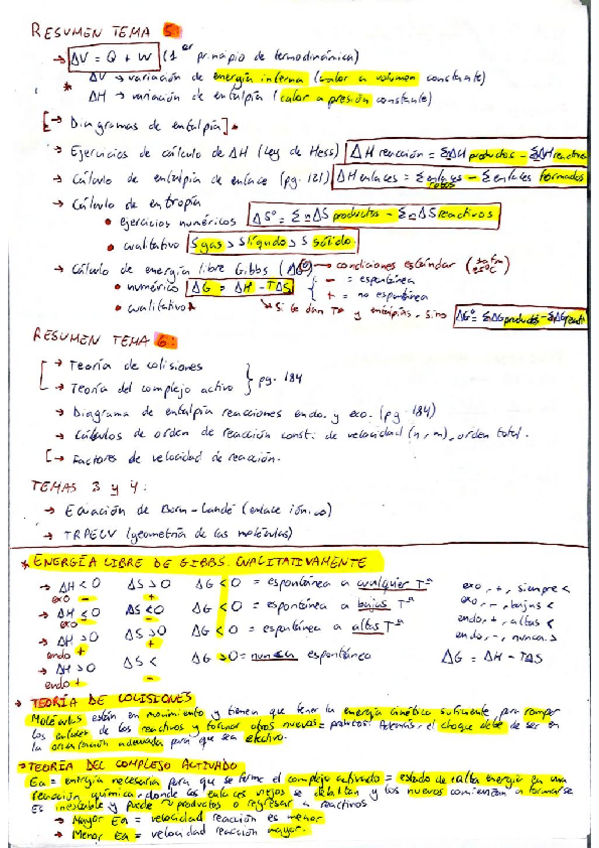 RESUMEN TEMA 5:
→ ΔV = Q + W (1er principio de termodinámica)
* ΔV → variación de energía interna (calor a volumen constante)
ΔH → variación de entalpía (calor a presión constante)
[→ Diagramas de entalpía]
→ Ejercicios de cálculo de ΔH (Ley de Hess) ΔH reacción = ΣΔH productos - ΣΔH reactivo
→ Cálculo de entalpía de enlace (pg. 121) ΔH enlaces = Σ enlaces rotos - Σ enlaces formados
→ Cálculo de entropía
• ejercicios numéricos ΔS° = Σ n ΔS productos - Σ n ΔS reactivos
• cualitativo S gas > S líquido > S sólido.
→ Cálculo de energía libre Gibbs (ΔG°) → condiciones estándar (1atm 25°C)
• numérico ΔG = ΔH - TΔS { - = espontánea
• cualitativo* + = no espontánea
→ Si te dan Tª y entalpías, sino ΔG° = ΣΔG productos - ΣΔG reacti
RESUMEN TEMA 6:
[→ Teoría de colisiones
→ Teoría del complejo activo } pg. 184
→ Diagrama de entalpía reacciones endo. y exo. (pg. 184)
→ Cálculos de orden de reacción const. de velocidad (n, m), orden total.
[→ Factores de velocidad de reacción.
TEMAS 3 y 4:
→ Ecuación de Born-Landé (enlace iónico)
→ TRPECV (geometría de las moléculas)
* ENERGÍA LIBRE DE GIBBS. CUALITATIVAMENTE
→ ΔH < 0 ΔS > 0 ΔG < 0 = espontánea a cualquier Tª exo, +, siempre <
exo - +
→ ΔH < 0 ΔS < 0 ΔG < 0 = espontánea a bajas Tª exo, -, bajas <
exo - -
→ ΔH > 0 ΔS > 0 ΔG < 0 = espontánea a altas Tª endo, +, altas <
endo + +
→ ΔH > 0 ΔS < ΔG > 0 = nunca espontánea endo, -, nunca >
endo + - ΔG = ΔH - TΔS
→ TEORÍA DE COLISIONES
Moléculas están en movimiento y tienen que tener la energía cinética suficiente para romper
los enlaces de los reactivos y formar otros nuevos = productos. Además, el choque debe de ser en
la orientación adecuada para que sea efectivo.
→ TEORÍA DEL COMPLEJO ACTIVADO
Ea = energía necesaria para que se forme el complejo activado = estado de alta energía en una
reacción química, donde los enlaces viejos se debilitan y los nuevos comienzan a formarse
Es inestable y puede → productos o regresar a reactivos
→ Mayor Ea = velocidad reacción es menor
→ Menor Ea = velocidad reacción mayor.